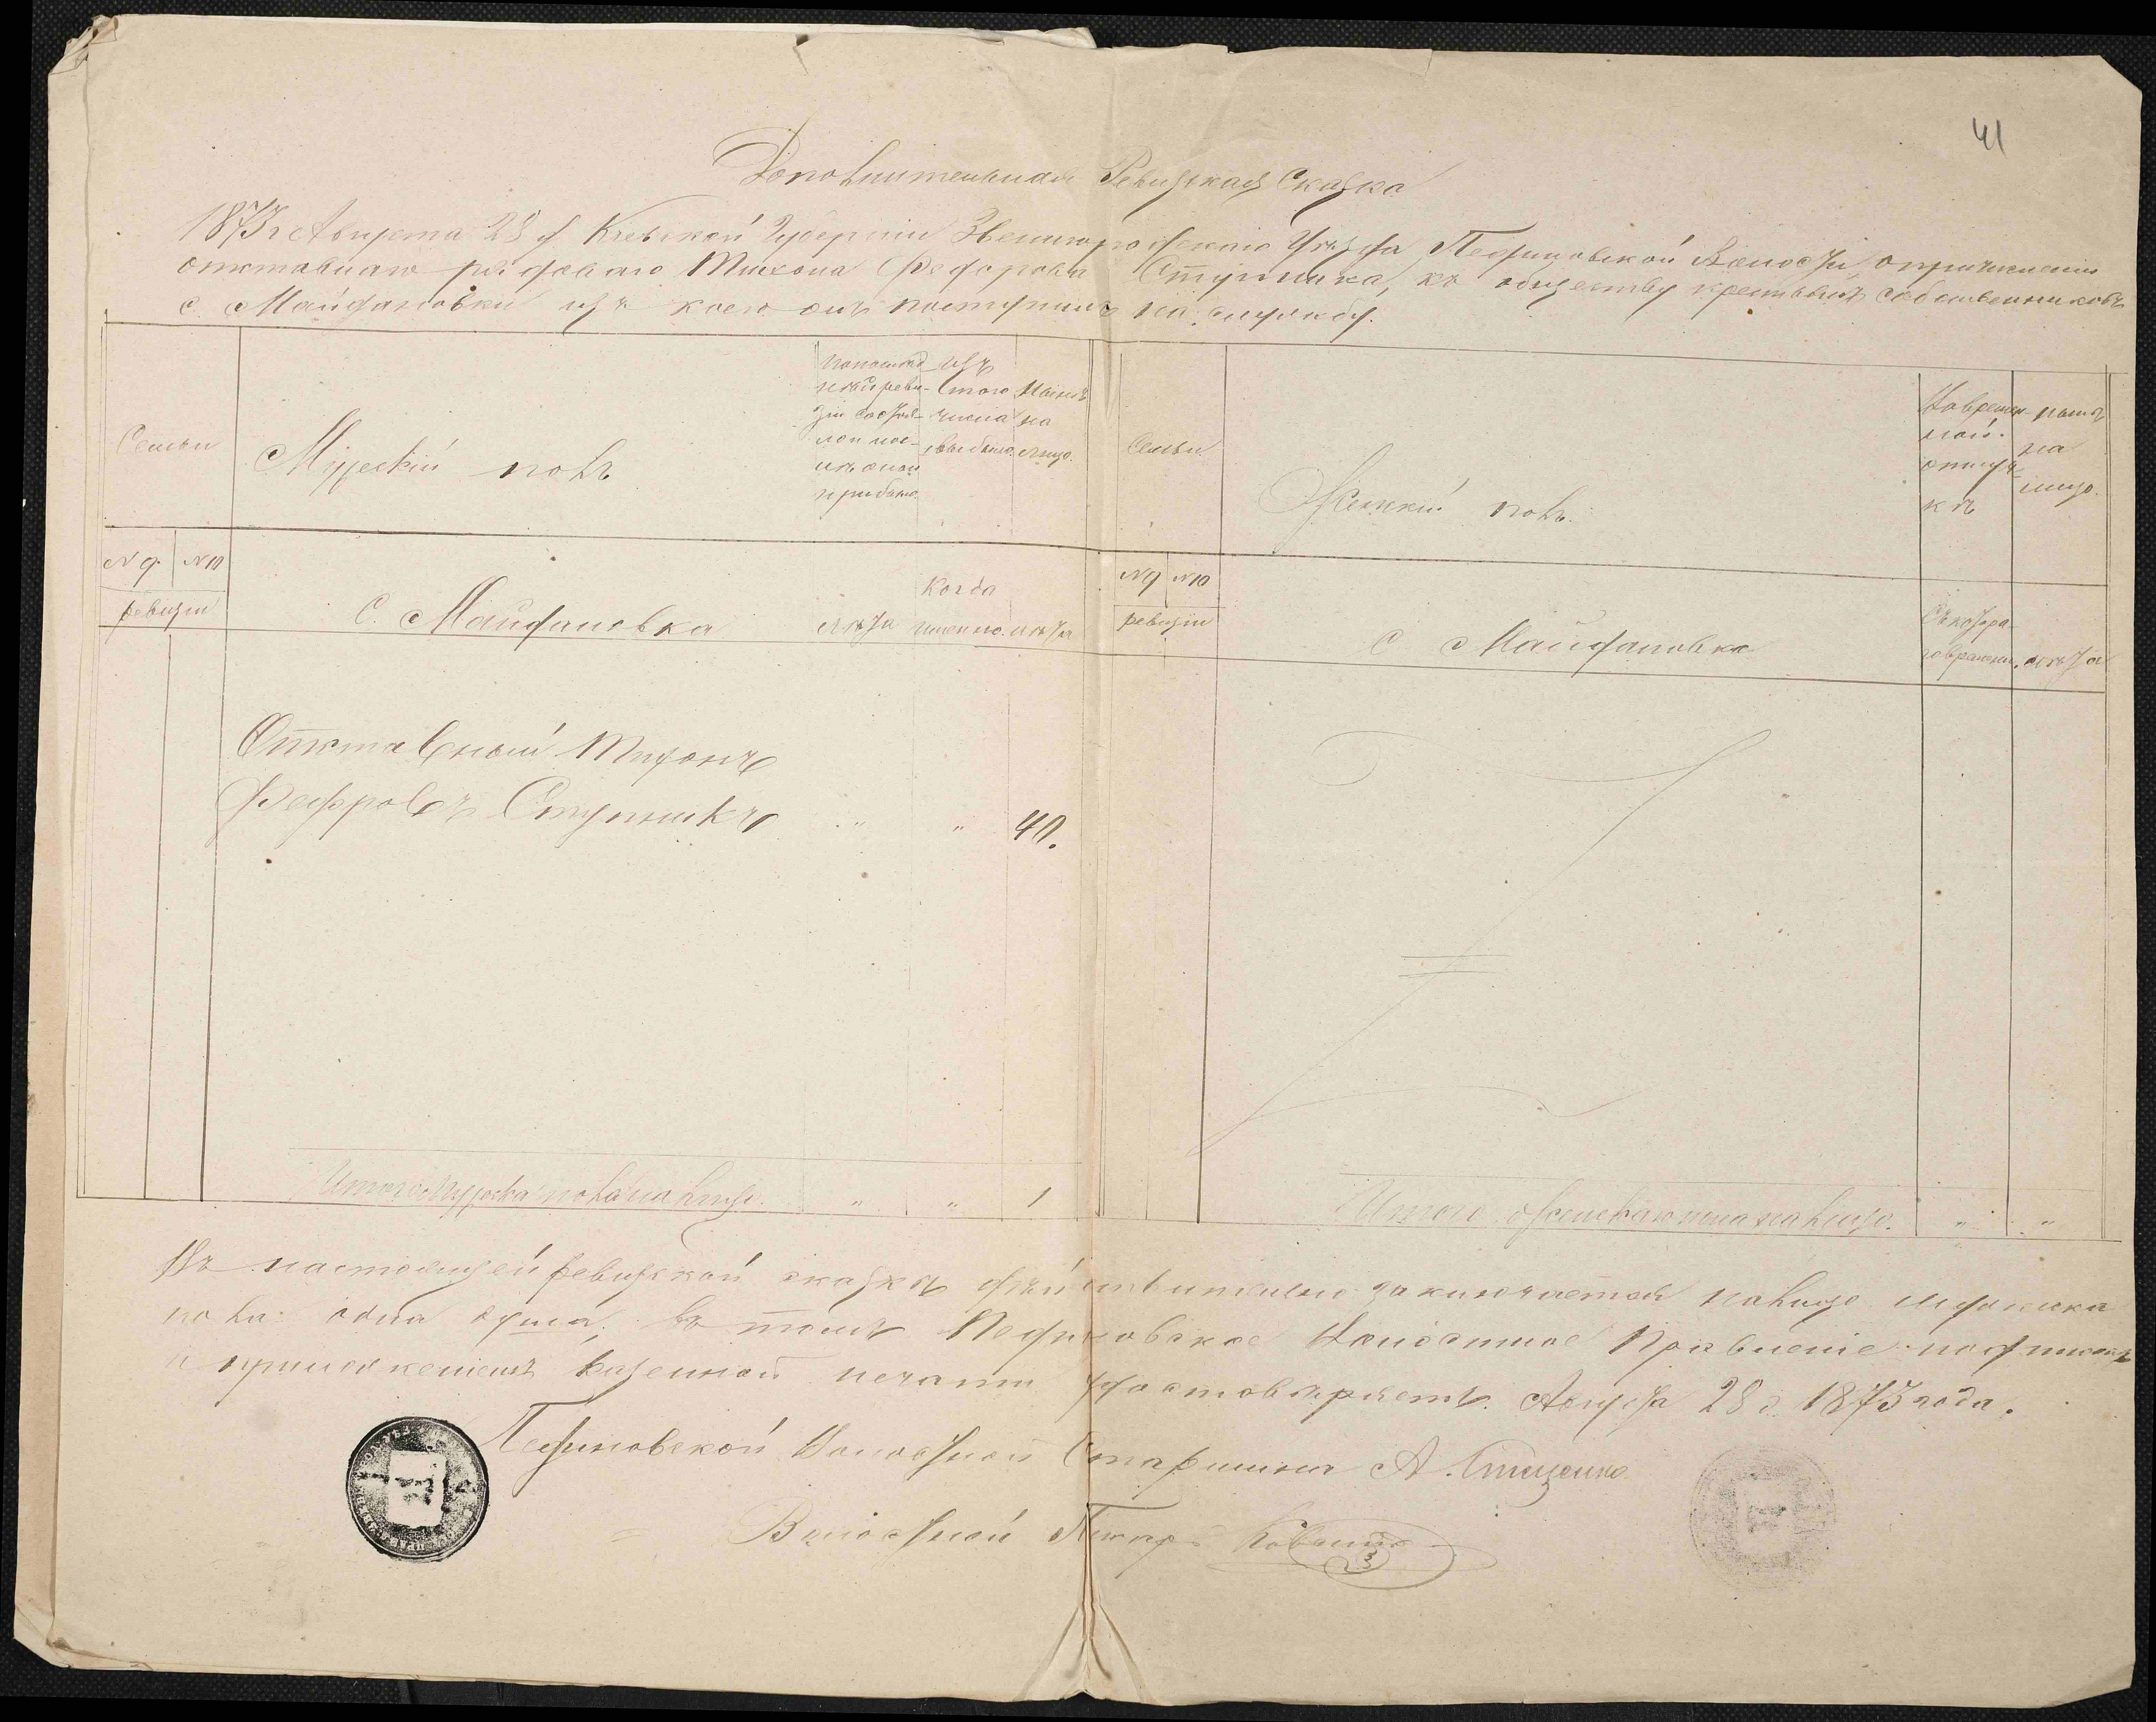 41
Дополнительная Ревизская Сказка
1873 г Августа 28 д. Кіевской Губерніи Звенигородскаго Уѣзда Пединовской Волости, о причисленіи
отставнаго рядоваго Тихона Федорова Ступника, къ обществу крестьянъ собственниковъ
с. Майдановки изъ коего онъ поступилъ на службу.
Семьи
Мужескій полъ
По послед
ней реви-
зіи состоя-
ло и пос-
лѣ оной
прибыло.
Изъ
того
числа
выбыло.
Нынѣ
на
лицо.
Семьи
Женскій полъ.
Во времен-
ной
отлуч-
кѣ
Нынѣ
на
лицо.
№ 9. № 10
ревизіи
С. Майдановка
лѣта
Когда
именно.
лѣта
№ 9 № 10
ревизіи
С Майдановка
Съ котора-
го времени.
лѣта
Отставный Тихонъ
Федоровъ Ступникъ " " 40.
Итого мужеска пола на лицо. " " 1
Итого женскаго пола на лицо. " "
Въ настоящей ревизской сказкѣ дѣйствительно заключается на лицо мужеска
пола одна душа, въ томъ Пединовское Волостное Правленіе подписомъ
и приложеніемъ казенной печати удостовѣряетъ. Августа 28 д. 1873 года.
Пединовской Волостной Старшина А. Стеценко
Волостной Писарь